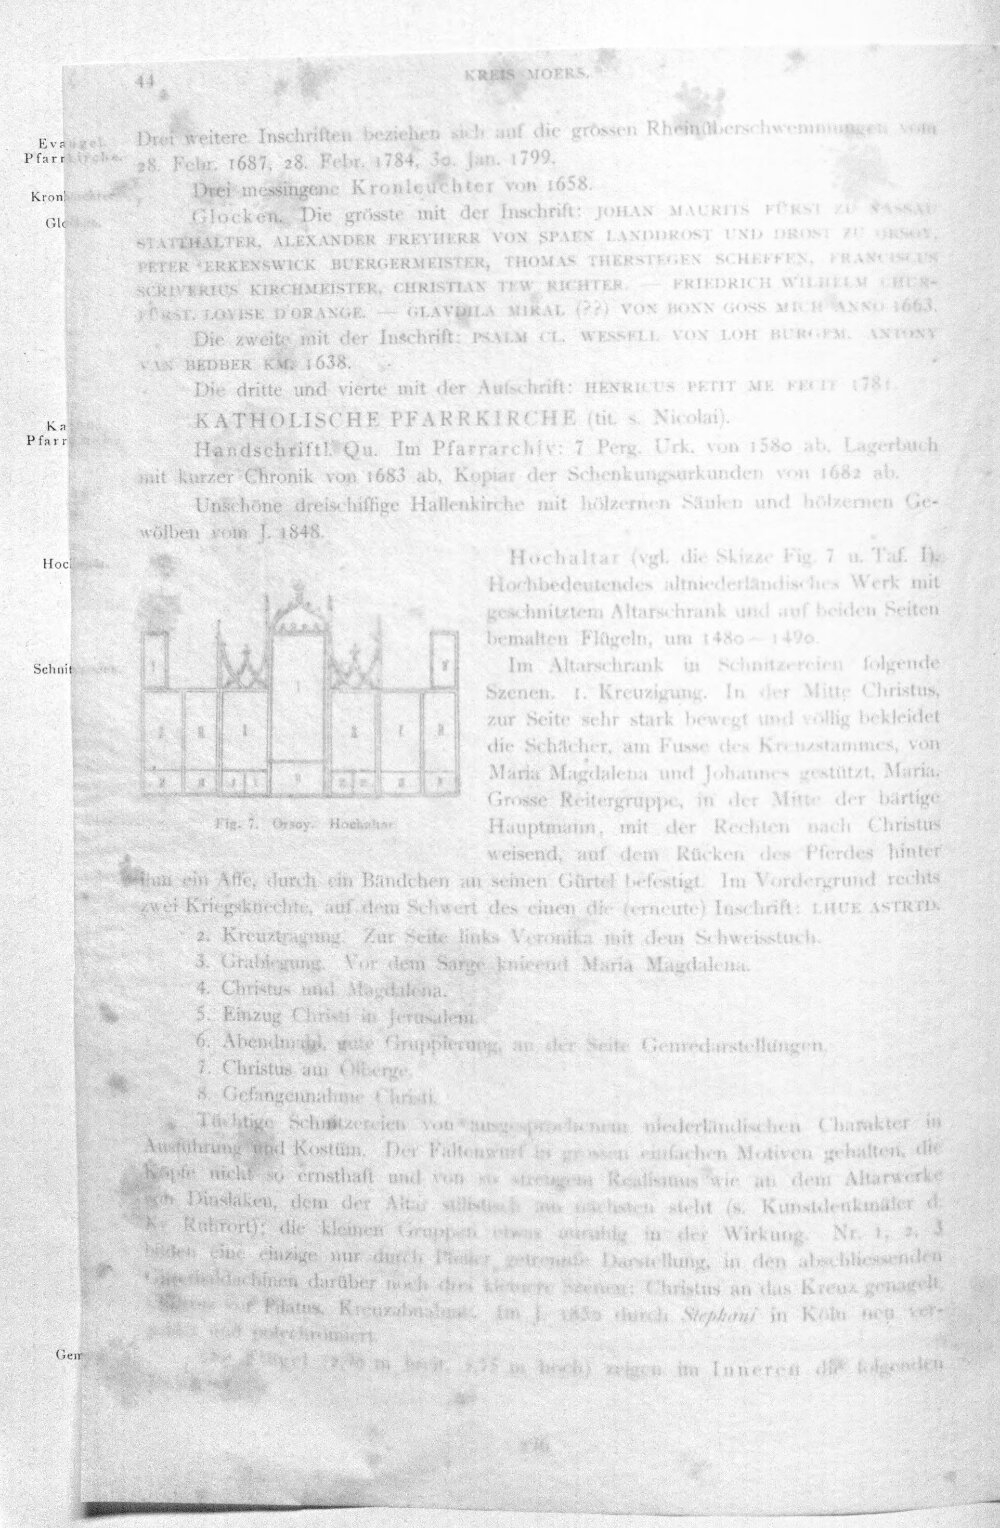 44
KREIS MOERS.
Evangel.
Pfarrkirche.
Drei weitere Inschriften beziehen sich auf die grossen Rheinüberschwemmungen vom
28. Febr. 1687, 28. Febr. 1784, 30. Jan. 1799.
Kronleuchter
Drei messingene Kronleuchter von 1658.
Glocken.
Glocken. Die grösste mit der Inschrift: JOHAN MAURITS FÜRST ZU NASSAU
STATTHALTER, ALEXANDER FREYHERR VON SPAEN LANDDROST UND DROST ZU ORSOY,
PETER ERKENSWICK BUERGERMEISTER, THOMAS THERSTEGEN SCHEFFEN, FRANCISCUS
SCRIVERIUS KIRCHMEISTER, CHRISTIAN TEW RICHTER. — FRIEDRICH WILHELM CHUR-
FÜRST, LOVISE D'ORANGE. — GLAVDILA MIRAL (??) VON BONN GOSS MICH ANNO 1663.
Die zweite mit der Inschrift: PSALM CL. WESSELL VON LOH BURGEM. ANTONY
VAN BEDBER KM. 1638.
Die dritte und vierte mit der Aufschrift: HENRICUS PETIT ME FECIT 1781.
Kathol.
Pfarrkirche
KATHOLISCHE PFARRKIRCHE (tit. s. Nicolai).
Handschriftl. Qu. Im Pfarrarchiv: 7 Perg. Urk. von 1580 ab, Lagerbuch
mit kurzer Chronik von 1683 ab, Kopiar der Schenkungsurkunden von 1682 ab.
Unschöne dreischiffige Hallenkirche mit hölzernen Säulen und hölzernen Ge-
wölben vom J. 1848.
Hochaltar
Hochaltar (vgl. die Skizze Fig. 7 u. Taf. I).
Hochbedeutendes altniederländisches Werk mit
geschnitztem Altarschrank und auf beiden Seiten
bemalten Flügeln, um 1480—1490.
Schnitzereien.
Im Altarschrank in Schnitzereien folgende
Szenen. 1. Kreuzigung. In der Mitte Christus,
zur Seite sehr stark bewegt und völlig bekleidet
die Schächer, am Fusse des Kreuzstammes, von
Maria Magdalena und Johannes gestützt, Maria.
Grosse Reitergruppe, in der Mitte der bärtige
Hauptmann, mit der Rechten nach Christus
weisend, auf dem Rücken des Pferdes hinter
Fig. 7. Orsoy. Hochaltar
ihm ein Affe, durch ein Bändchen an seinen Gürtel befestigt. Im Vordergrund rechts
zwei Kriegsknechte, auf dem Schwert des einen die (erneute) Inschrift: LHUE ASTRTD.
2. Kreuztragung. Zur Seite links Veronika mit dem Schweisstuch.
3. Grablegung. Vor dem Sarge knieend Maria Magdalena.
4. Christus und Magdalena.
5. Einzug Christi in Jerusalem.
6. Abendmahl, gute Gruppierung, an der Seite Genredarstellungen.
7. Christus am Ölberge.
8. Gefangennahme Christi.
Tüchtige Schnitzereien von ausgesprochenem niederländischen Charakter in
Ausführung und Kostüm. Der Faltenwurf in grossen einfachen Motiven gehalten, die
Köpfe nicht so ernsthaft und von so strengem Realismus wie an dem Altarwerke
von Dinslaken, dem der Altar stilistisch am nächsten steht (s. Kunstdenkmäler d.
Kr. Ruhrort); die kleinen Gruppen etwas unruhig in der Wirkung. Nr. 1, 2, 3
bilden eine einzige nur durch Pfeiler getrennte Darstellung, in den abschliessenden
darüber noch drei kleinere Szenen: Christus an das Kreuz genagelt,
vor Pilatus, Kreuzabnahme. Im J. durch Stephani in Köln neu ver-
und polychromiert.
Gem
Die Flügel m breit, m hoch) zeigen im Inneren die folgenden